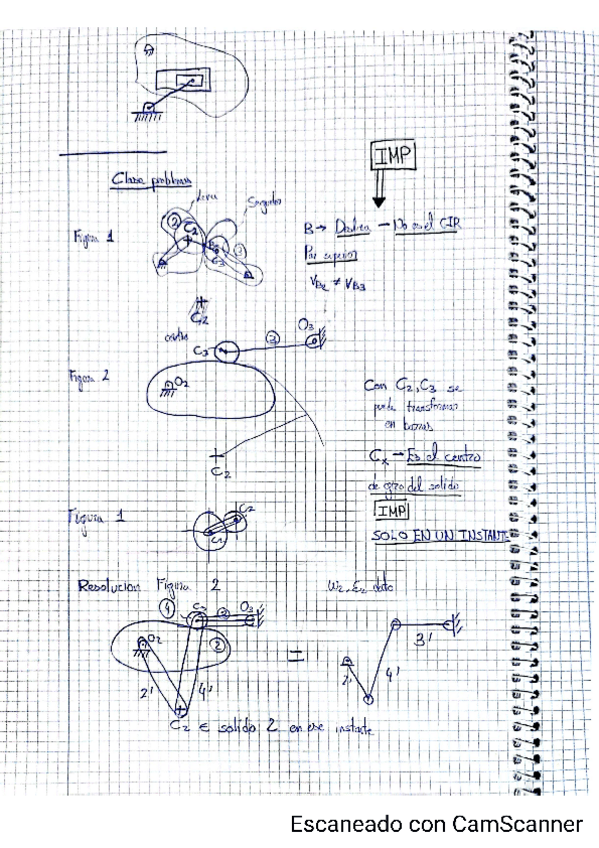 IMP
Clase problemas
Leva
Seguidor
Figura 1
2
C2
B
3
C3
B → Desliza - No es el CIR
Par superior
VB2 ≠ VB3
C2
centro
C3
3
O3
Figura 2
O2
C2
Con C2, C3 se
puede transformar
en barras
Cx → Es el centro
de giro del solido
IMP
SOLO EN UN INSTANTE
Figura 1
C2
C1
Resolucion Figura 2
W2, E2 dato
4
C3
3
O3
O2
2
2'
4'
=
3'
2'
4'
C2 ∈ solido 2 en ese instante
Escaneado con CamScanner